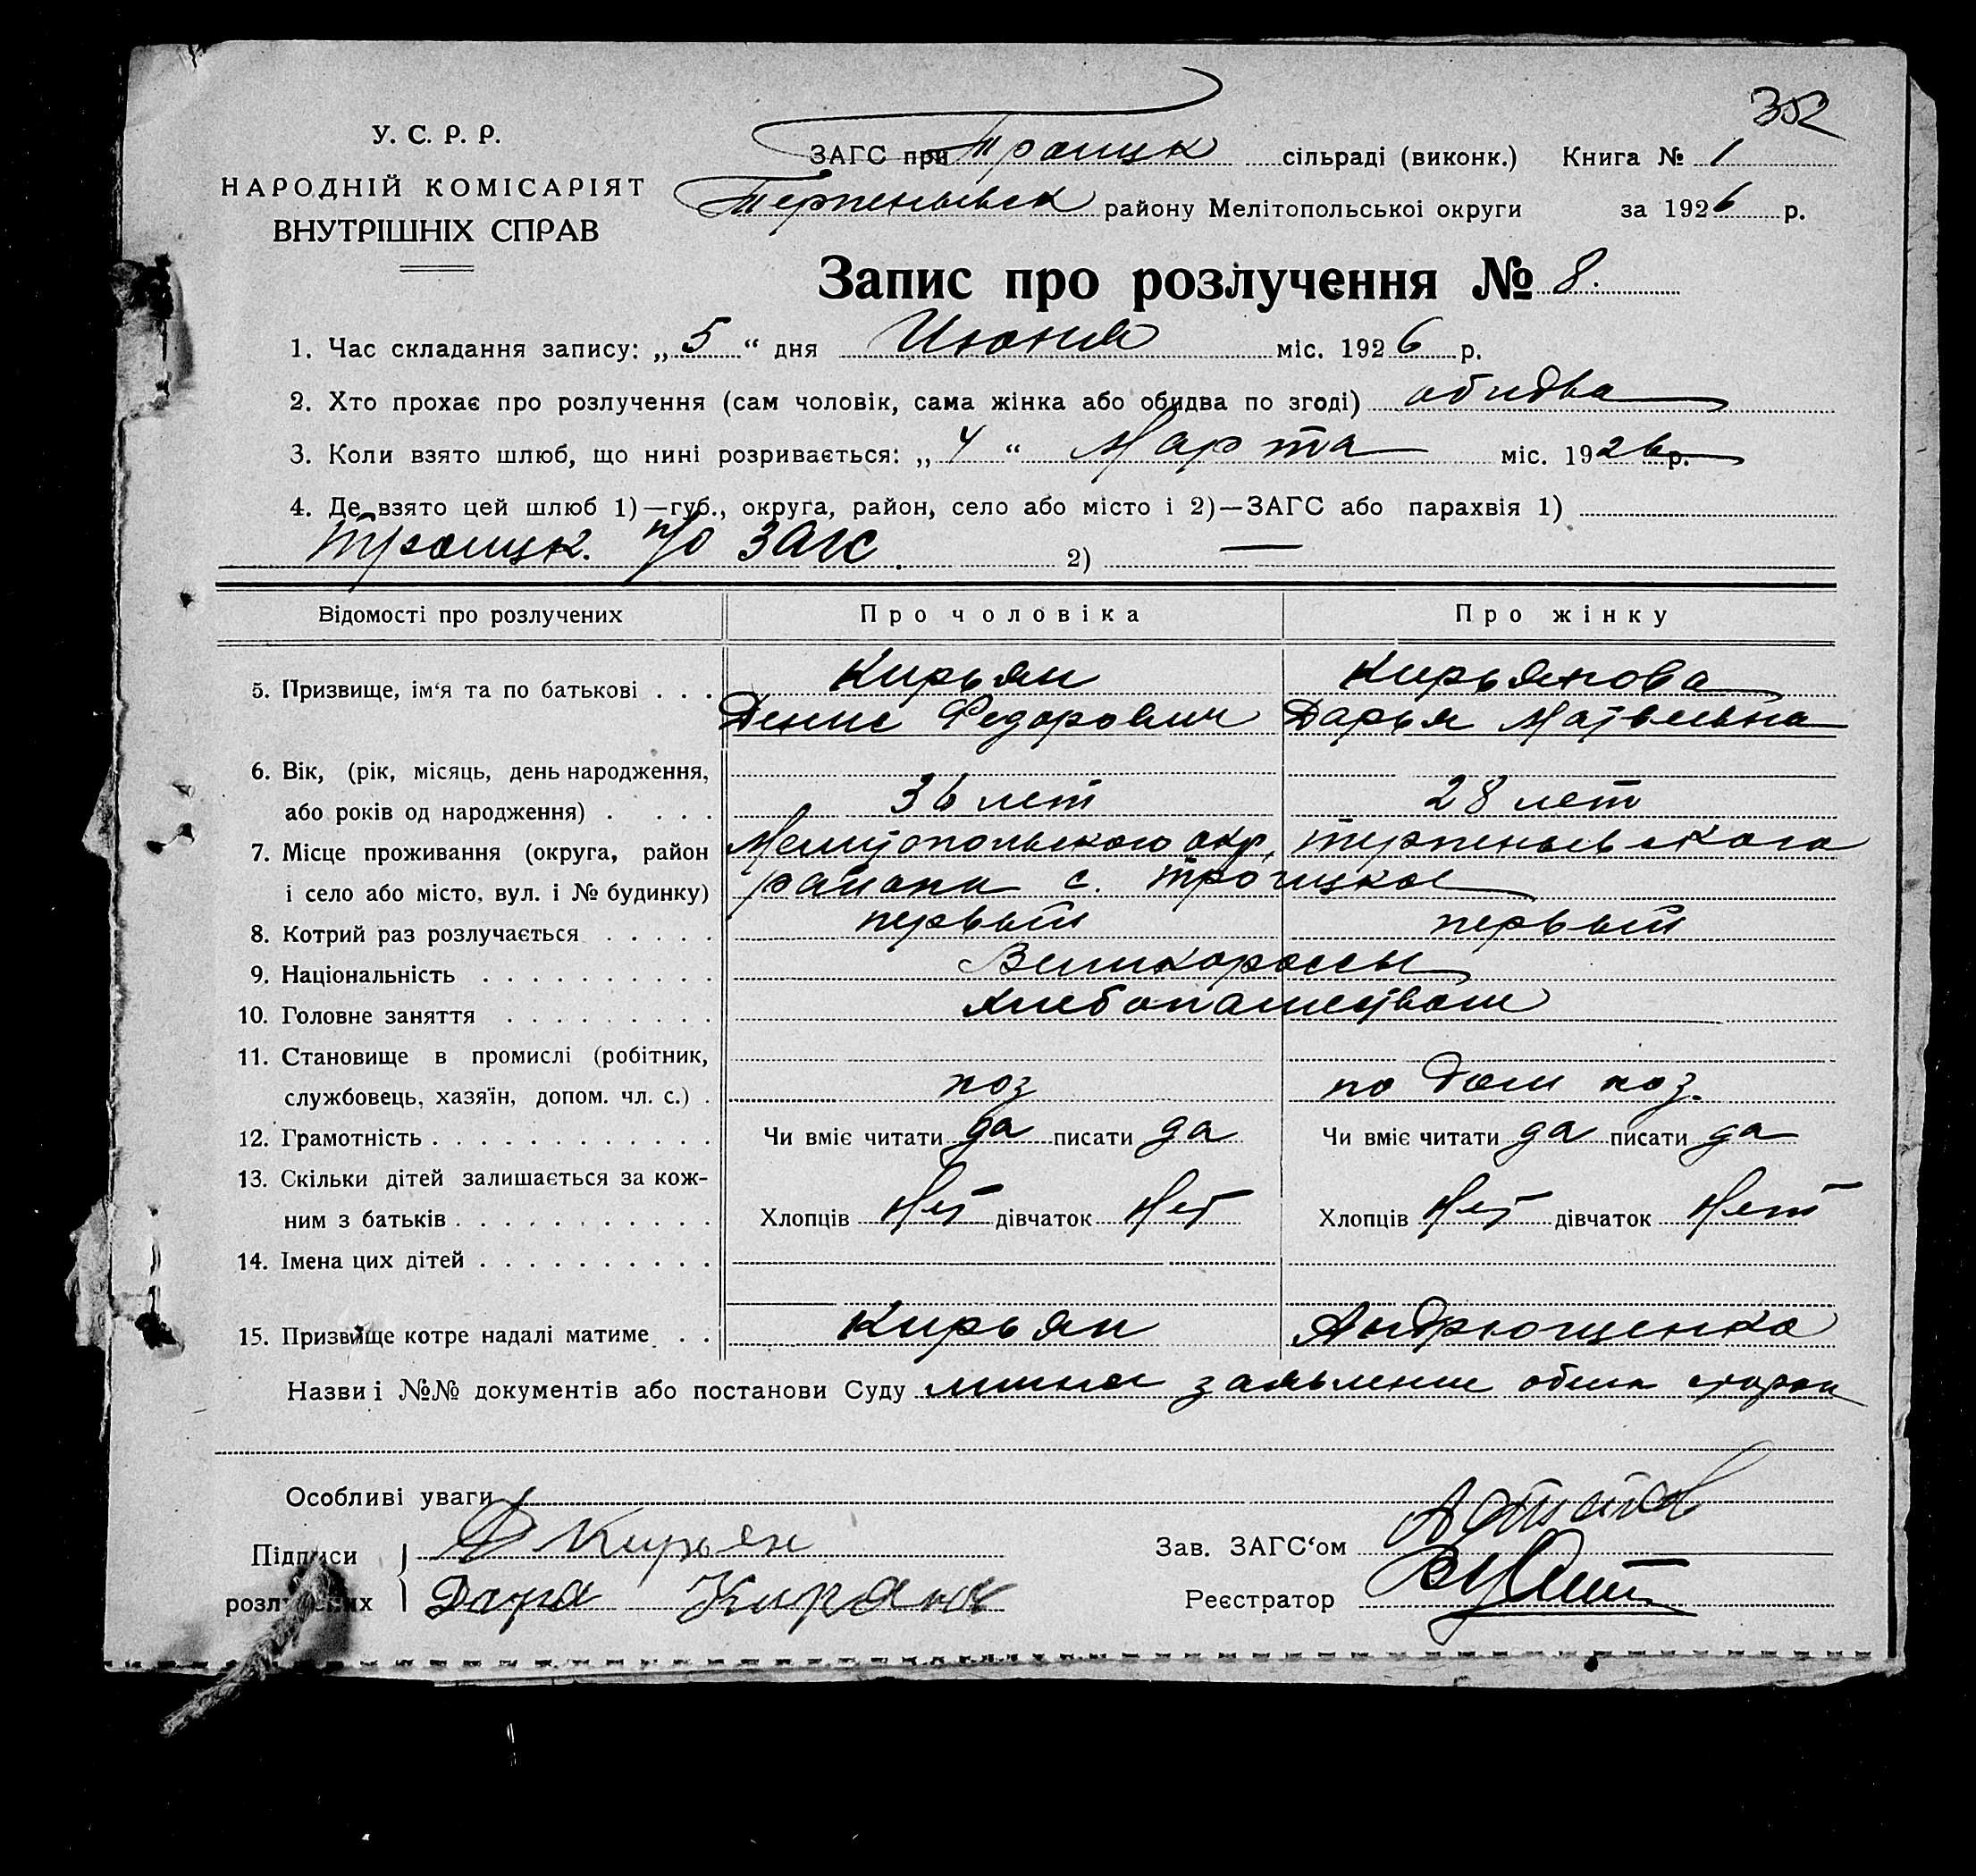 352
У. С. Р. Р.
НАРОДНІЙ КОМІСАРІЯТ
ВНУТРІШНІХ СПРАВ
ЗАГС при Троицк сільраді (виконк.) Книга № 1
Терпеньевск району Мелітопольської округи за 1926 р.
Запис про розлучення № 8.
1. Час складання запису: „5“ дня Июня міс. 1926 р.
2. Хто прохає про розлучення (сам чоловік, сама жінка або обидва по згоді) обидва
3. Коли взято шлюб, що нині розривається: „4“ Марта міс. 1926 р.
4. Де взято цей шлюб 1)—губ., округа, район, село або місто і 2)—ЗАГС або парахвія 1)
Троицк. п/о ЗАГС. 2) —
Відомості про розлучених Про чоловіка Про жінку
5. Призвище, ім‘я та по батькові . . . Кирьян Кирьянова
Денис Федорович Дарья Матвеевна
6. Вік, (рік, місяць, день народження,
або років од народження) . . . . 36 лет 28 лет
7. Місце проживання (округа, район Мелитопольского окр. Терпеньевского
і село або місто, вул. і № будинку) района с. Троицкое
8. Котрий раз розлучається . . . . . первый первый
9. Національність . . . . . . . . . . Великороссы
10. Головне заняття . . . . . . . . . хлебопашеством
11. Становище в промислі (робітник,
службовець, хазяїн, допом. чл. с.) . хоз по дом хоз.
12. Грамотність . . . . . . . . . . . . Чи вміє читати да писати да Чи вміє читати да писати да
13. Скільки дітей залишається за кож-
ним з батьків . . . . . . . . . . . Хлопців Нет дівчаток Нет Хлопців Нет дівчаток Нет
14. Імена цих дітей . . . . . . . . . .
15. Призвище котре надалі матиме . . Кирьян Андрющенко
Назви і №№ документів або постанови Суду личное заявление обеих сторон
Особливі уваги
Підписи Д Кирьян Зав. ЗАГС‘ом
розлучених Дара Киряна Реєстратор